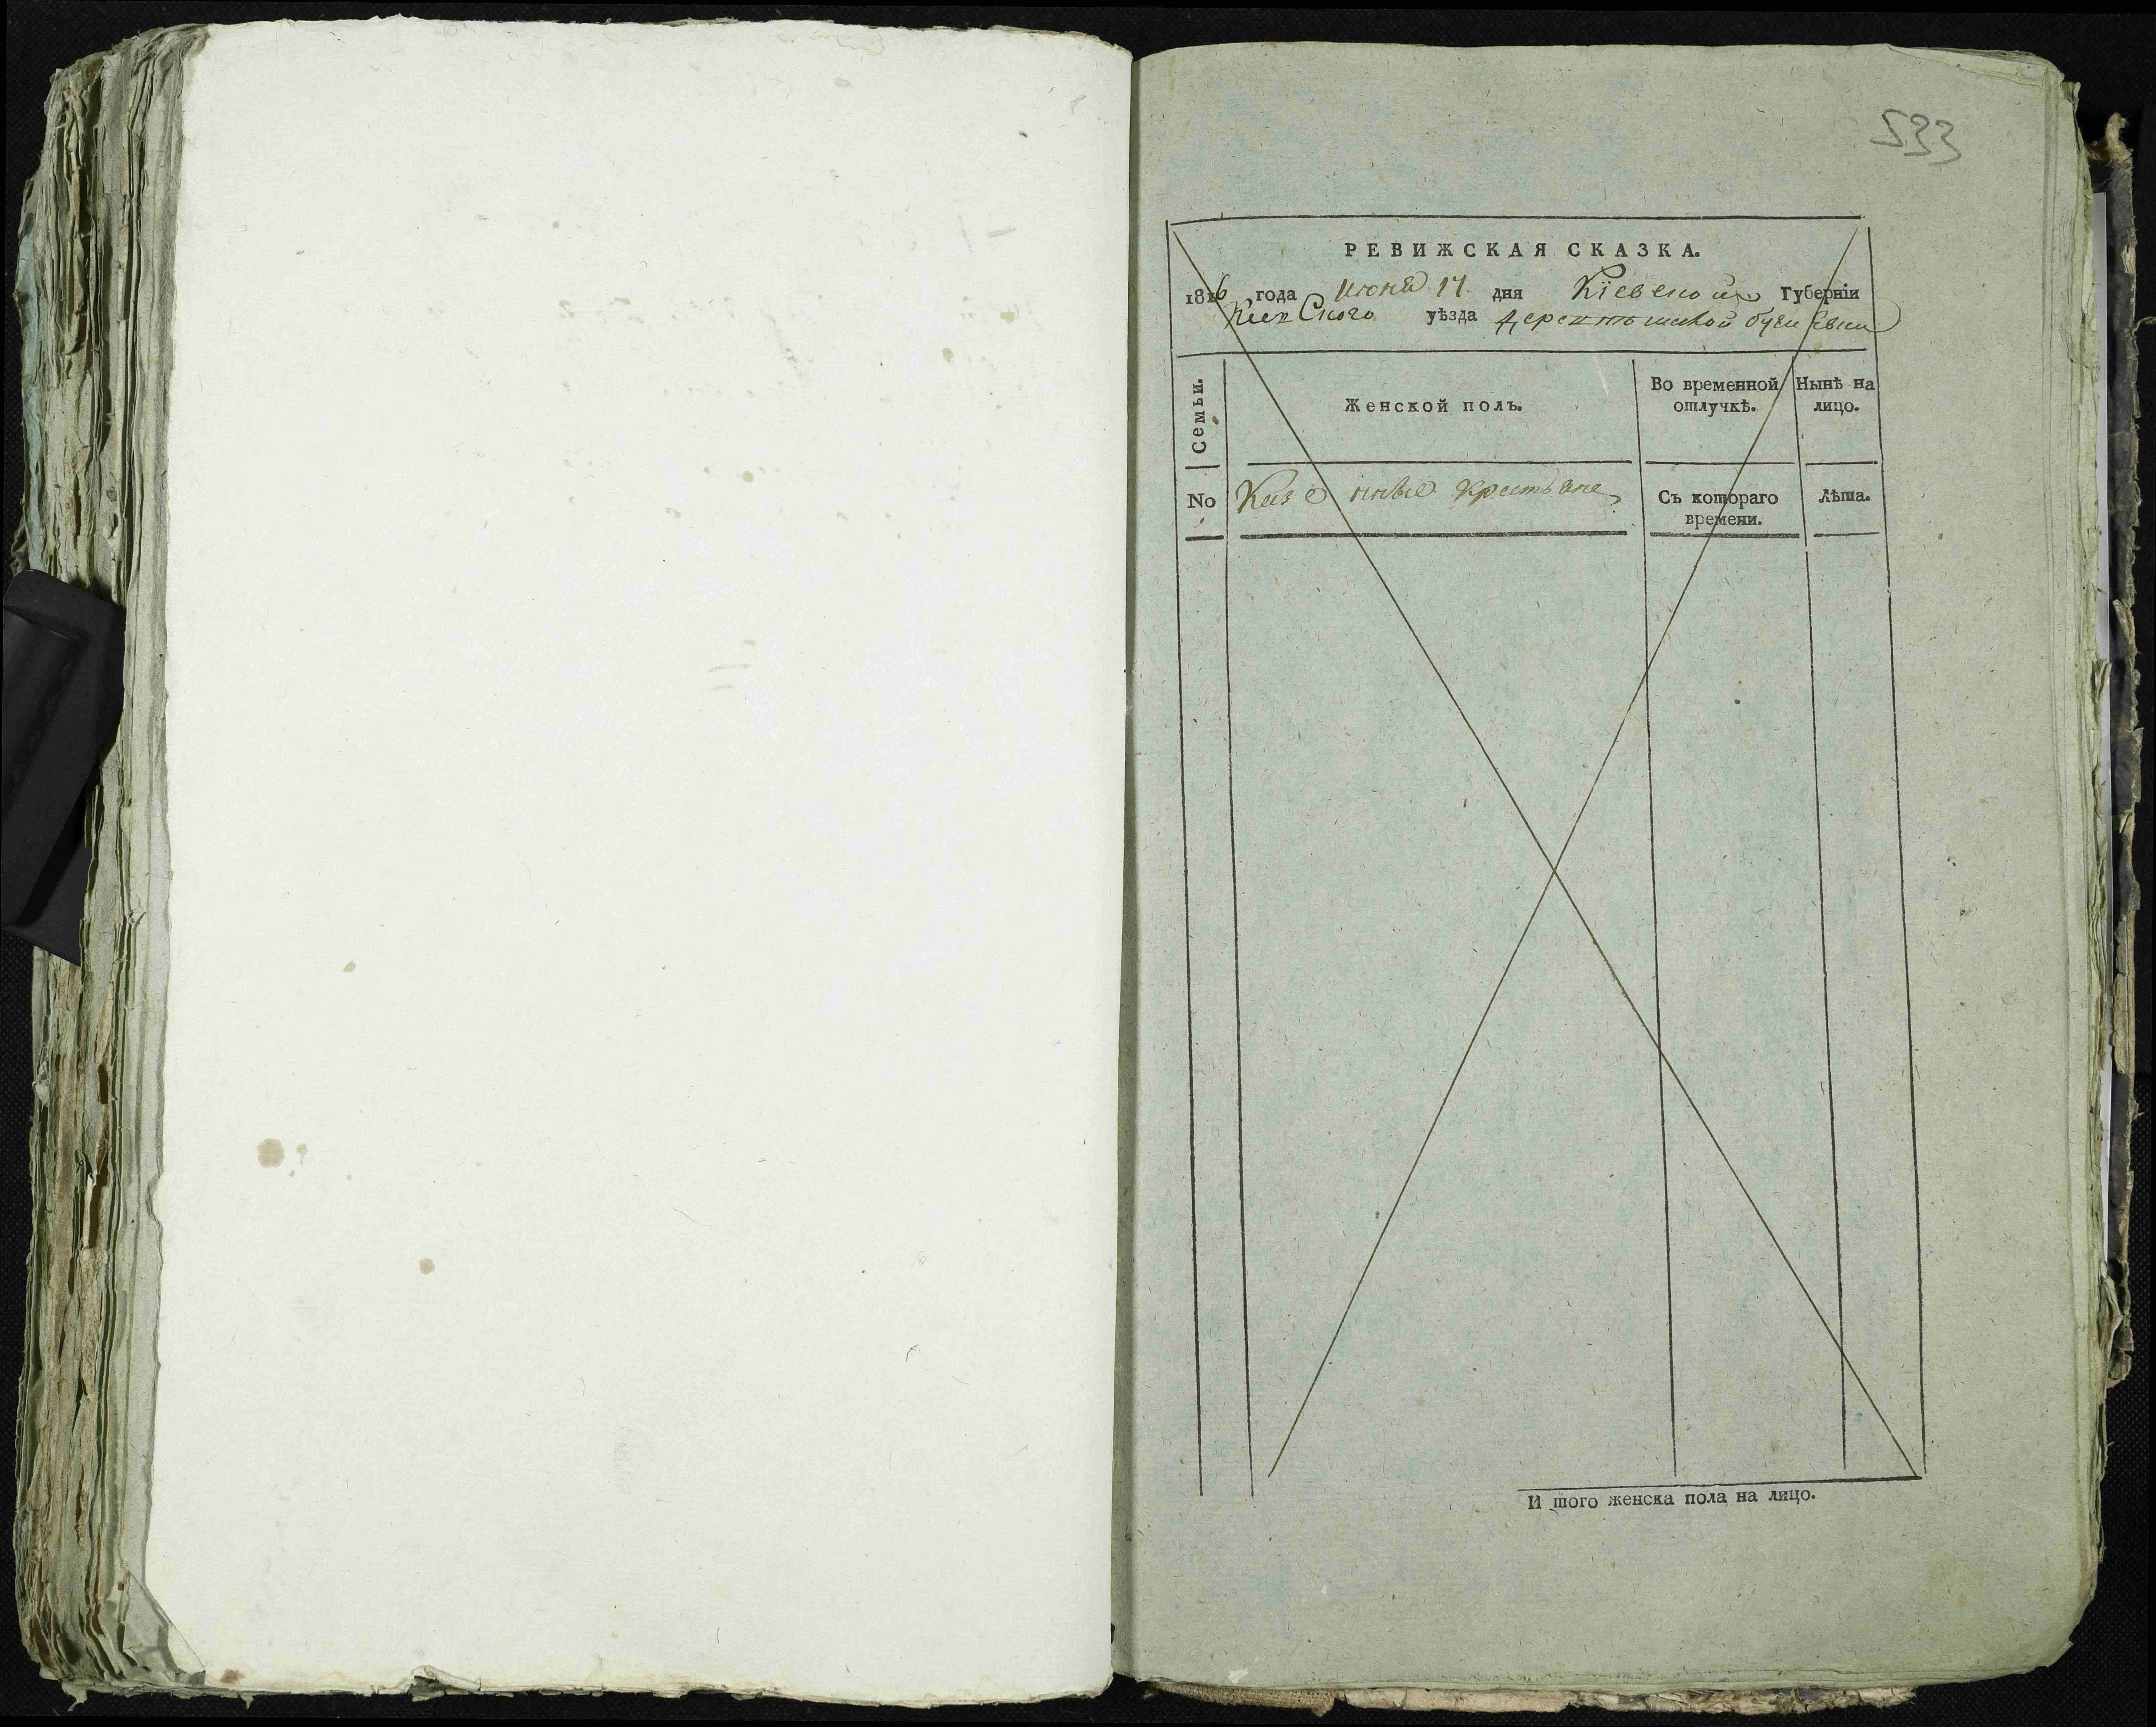 533
РЕВИЖСКАЯ СКАЗКА.
1816 года июня 17 дня Кіевской Губерніи
Кіевского уѣзда
Семьи.
Женской полъ.
Во временной отлучкѣ.
Нынѣ на лицо.
No
Казенные крестьяне
Съ котораго времени.
Лѣта.
И того женска пола на лицо.